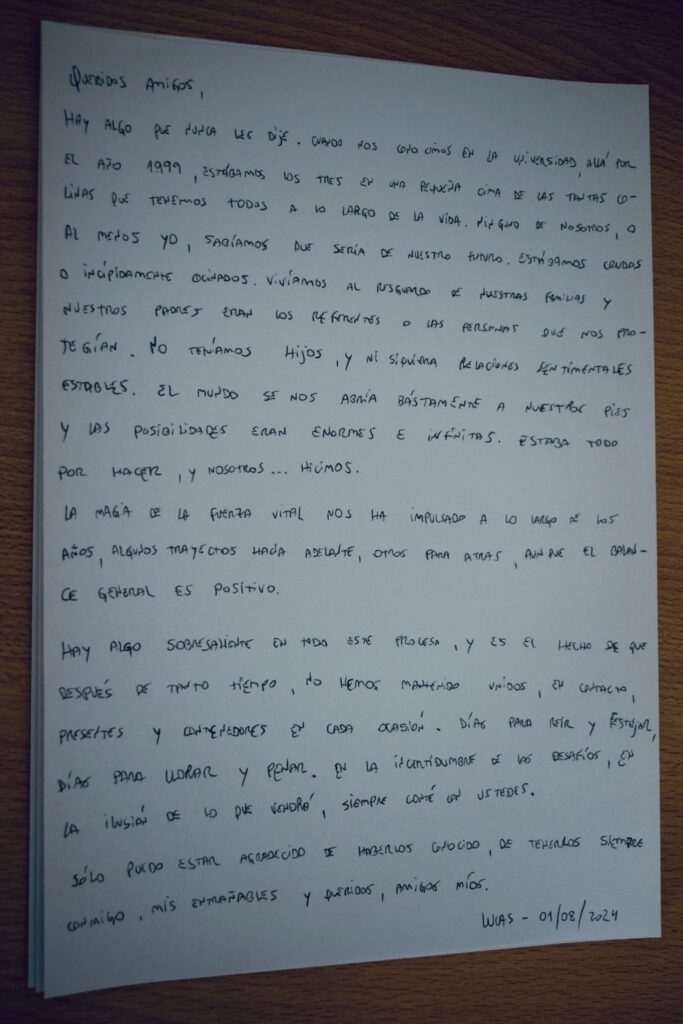 QUERIDOS AMIGOS,
HAY ALGO QUE NUNCA LES DIJE. CUANDO NOS CONOCIMOS EN LA UNIVERSIDAD, ALLÁ POR
EL AÑO 1999, ESTÁBAMOS LOS TRES EN UNA PEQUEÑA CIMA DE LAS TANTAS CO-
LINAS QUE TENEMOS TODOS A LO LARGO DE LA VIDA. NINGUNO DE NOSOTROS, O
AL MENOS YO, SABÍAMOS QUE SERÍA DE NUESTRO FUTURO. ESTÁBAMOS CRUDOS
O INCÍPIDAMENTE COCINADOS. VIVÍAMOS AL RESGUARDO DE NUESTRAS FAMILIAS Y
NUESTROS PADRES ERAN LOS REFERENTES O LAS PERSONAS QUE NOS PRO-
TEGÍAN. NO TENÍAMOS HIJOS, Y NI SIQUIERA RELACIONES SENTIMENTALES
ESTABLES. EL MUNDO SE NOS ABRÍA BÁSTAMENTE A NUESTROS PIES
Y LAS POSIBILIDADES ERAN ENORMES E INFINITAS. ESTABA TODO
POR HACER, Y NOSOTROS... HICIMOS.
LA MAGIA DE LA FUERZA VITAL NOS HA IMPULSADO A LO LARGO DE LOS
AÑOS, ALGUNOS TRAYECTOS HACIA ADELANTE, OTROS PARA ATRAS, AUNQUE EL BALAN-
CE GENERAL ES POSITIVO.
HAY ALGO SOBRESALIENTE EN TODO ESTE PROCESO, Y ES EL HECHO DE QUE
DESPUÉS DE TANTO TIEMPO, NO HEMOS MANTENIDO UNIDOS, EN CONTACTO,
PRESENTES Y CONTENEDORES EN CADA OCASIÓN. DÍAS PARA REÍR Y FESTEJAR,
DÍAS PARA LLORAR Y PENAR. EN LA INCERTIDUMBRE DE LOS DESAFÍOS, EN
LA ILUSIÓN DE LO QUE VENDRÁ, SIEMPRE CONTÉ CON USTEDES.
SÓLO PUEDO ESTAR AGRADECIDO DE HABERLOS CONOCIDO, DE TENERLOS SIEMPRE
CONMIGO, MIS ENTRAÑABLES Y QUERIDOS, AMIGOS MÍOS.
LUCAS - 01/08/2024